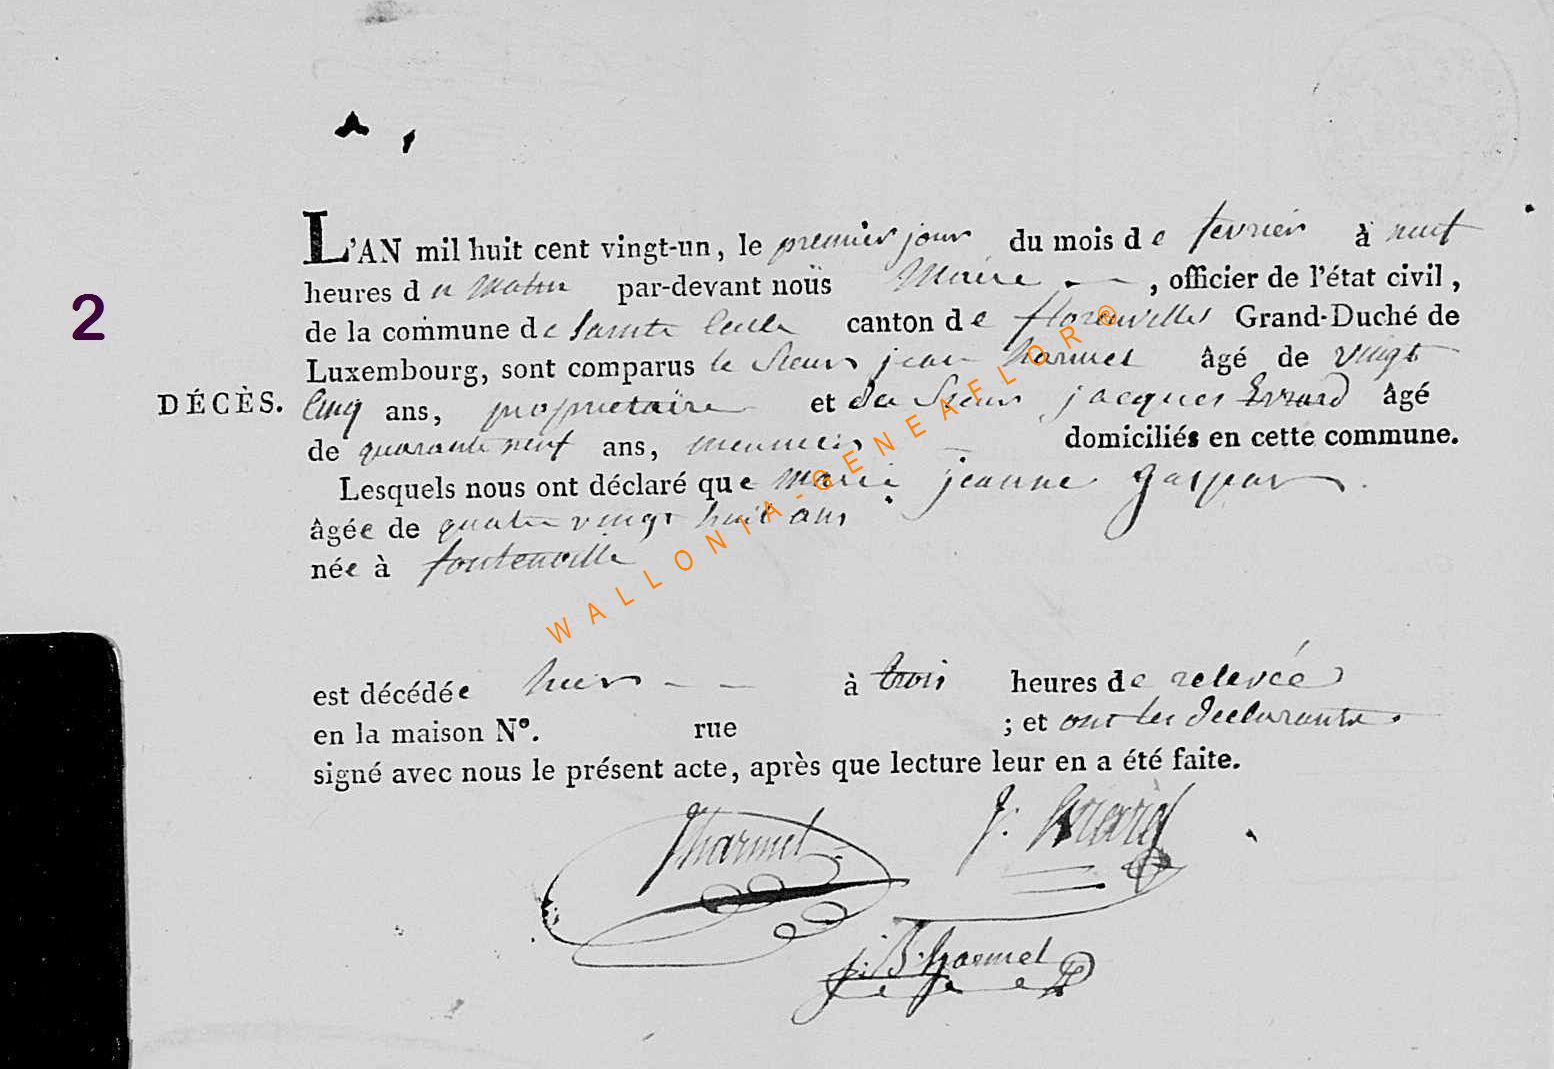 L'AN mil huit cent vingt-un, le premier jour du mois de fevrier à neuf
heures du Matin par-devant noüs Maire, officier de l'état civil,
de la commune de Sainte Cecile canton de florenvilles Grand-Duché de
Luxembourg, sont comparus le Sieur jean harmel âgé de vingt
2
DÉCÈS.
Cinq ans, proprietaire et du Sieur jacques Evrard âgé
de quarante neuf ans, meunier domiciliés en cette commune.
Lesquels nous ont déclaré que marie jeanne gaspar
âgée de quatre vingt huit ans
née à fontenoille
WALLONIA-GENEAFLOR®
est décédée hier à trois heures de relevée
en la maison N°. rue ; et ont les declarants
signé avec nous le présent acte, après que lecture leur en a été faite.
Jharmel J: Evrard
j: B. harmel